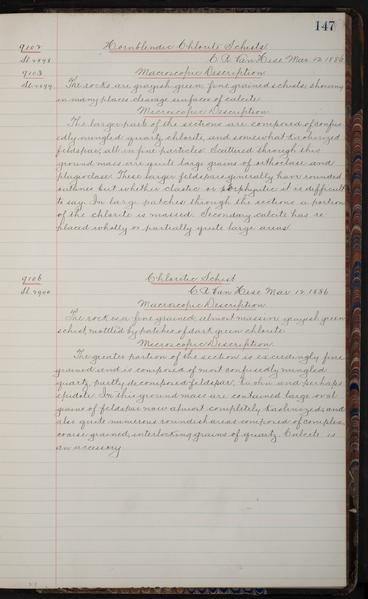 147
9102 Hornblendic Chlorite Schists.
Sl. 2898 C. R. Van Hise Mar. 12. 1886
9103 Macroscopic Description
Sl. 2899 The rocks are grayish green fine grained schists, showing
in many places cleavage surfaces of calcite.
Microscopic Description
The larger part of the sections are composed of confus-
edly mingled quartz, chlorite, and somewhat kaolinized
feldspar, all in fine particles. Scattered through this
ground mass are quite large grains of orthoclase and
plagioclase. These larger feldspars generally have rounded
outlines but whether clastic or porphyritic it is difficult
to say. In large patches through the sections a portion
of the chlorite is massed. Secondary calcite has re-
placed wholly or partially quite large areas.
9106 Chloritic Schist
Sl. 2900 C. R. Van Hise Mar. 12. 1886
Macroscopic Description
The rock is a fine grained almost massive grayish green
schist mottled by patches of dark green chlorite.
Microscopic Description.
The greater portion of the section is exceedingly fine
grained and is composed of most confusedly mingled
quartz, partly decomposed feldspar, kaolin and perhaps
epidote. In this ground mass are contained large oval
grains of feldspar now almost completely kaolinized, and
also quite numerous roundish areas composed of complex,
coarse grained, interlocking grains of quartz. Calcite is
an accessory.